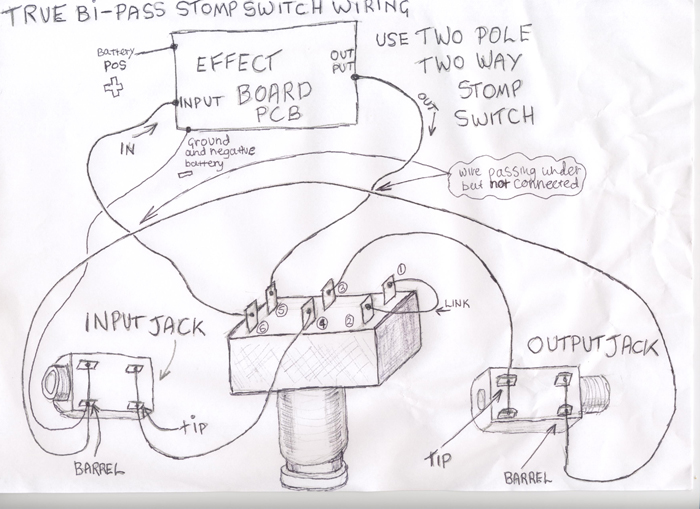 TRUE Bi-PASS STOMP SWITCH WIRING
Battery
POS
+
EFFECT
BOARD
PCB
OUT
PUT
INPUT
USE TWO POLE
TWO WAY
STOMP
SWITCH
OUT
IN
Ground
and negative
battery
-
wire passing under
but not connected
1
2
3
4
5
6
LINK
INPUT JACK
OUTPUT JACK
TiP
BARREL
TIP
BARREL